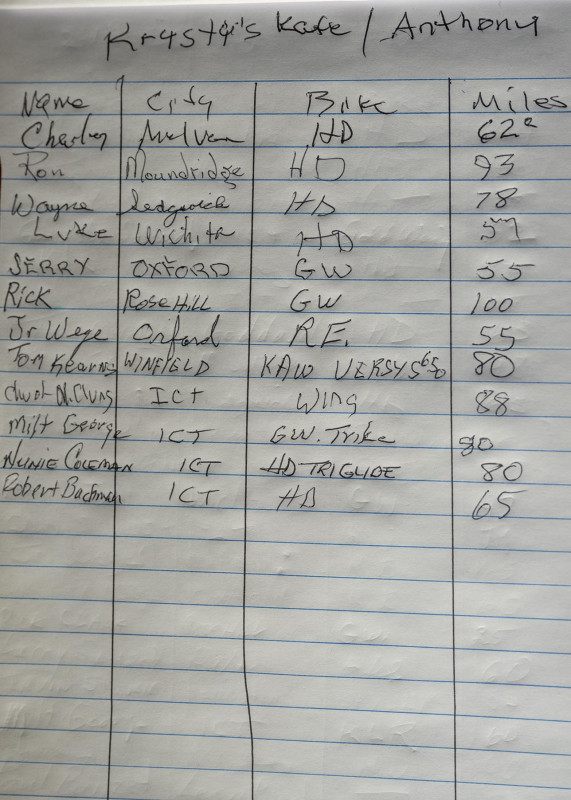 Krystal's Kafe / Anthony
Name City Bike Miles
Charley Mulvane HD 62
Ron Moundridge HD 93
Wayne Sedgwick HD 78
Luke Wichita HD
JERRY OXFORD GW 55
Rick ROSE HILL GW 100
Jr Wege Oxford R.E. 55
Tom Kearney WINFIELD KAW VERSYS 650 80
ICT Wing 88
Milt George ICT GW. Trike 90
NUNIE COLEMAN ICT HD TRIGLIDE 80
Robert Bachman ICT HD 65